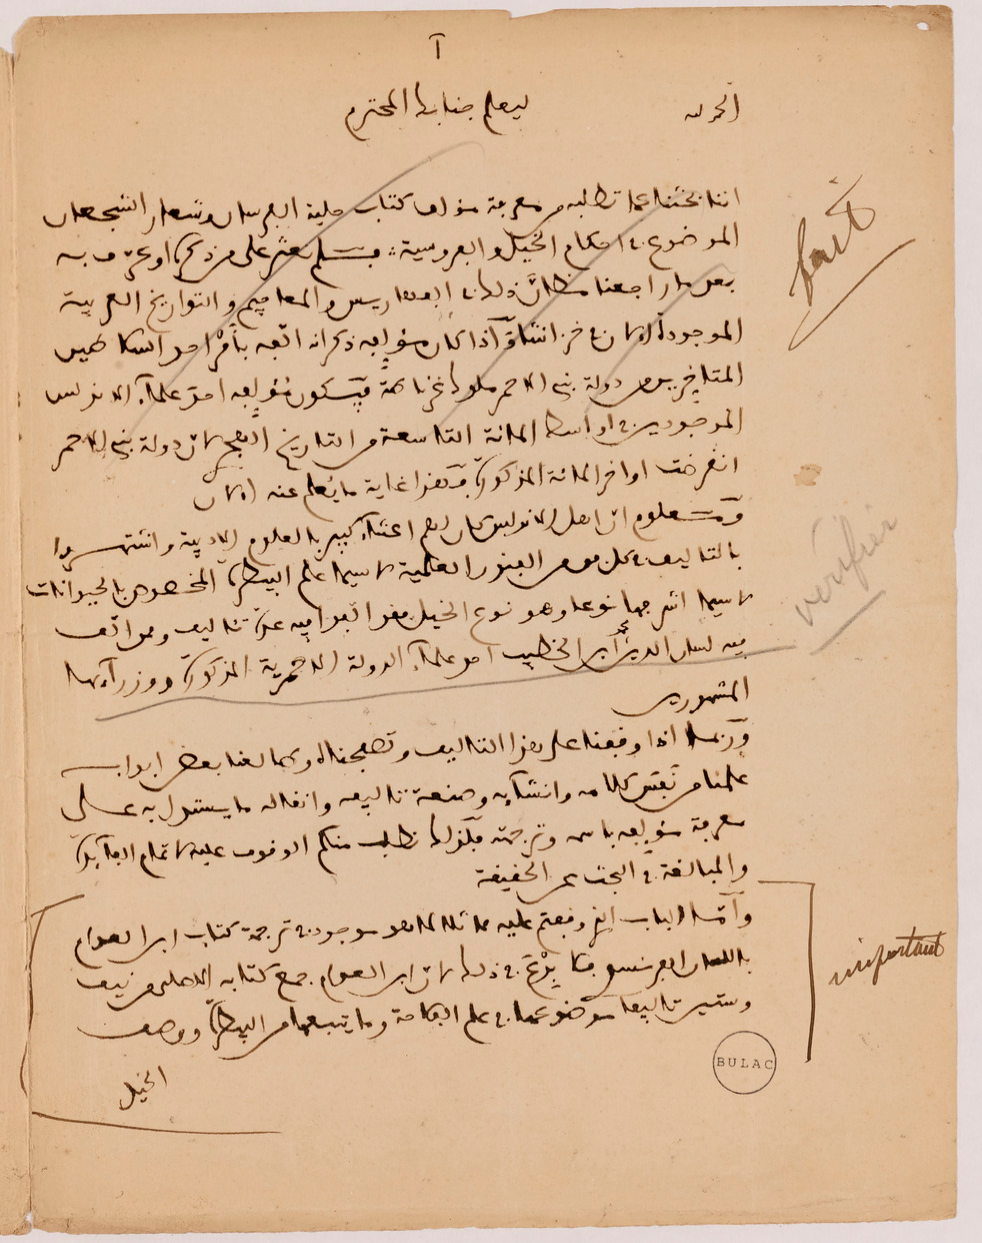 آ
الحمد لله
ليعلم جنابك المحترم
اننا بحثنا عما تطلبه من معرفة مؤلف كتاب حلية الفرسان وشعار الشجعان
الموضوع في احكام الخيل والفروسية فلم نعثر على من ذكره او عرف به
بعد ما راجعنا مظان ذلك في الفهاريس والمعاجم والتواريخ العربية
الموجودة الان في خزانتنا واذا كان مؤلفه ذكر انه الفه بأمر احد السلاطين
المتاخرين من دولة بني الاحمر ملوك غرناطة فيكون مؤلفه احد علماء الاندلس
الموجودين في اواسط المائة التاسعة من التاريخ الهجري لان دولة بني الاحمر
انقرضت اواخر المائة المذكورة فهذا غاية ما يُعلم عنه الان
ومعلوم ان اهل الاندلس كان لهم اعتناء كبير بالعلوم الادبية واشتهروا
بالتاليف في كل نوع من الفنون العلمية لا سيما علم البيطرة المخصوص بالحيوانات
لا سيما اشرفها نوعا وهو نوع الخيل فقد الفوا فيه عدة تئاليف وممن الف
فيه لسان الدين محمد ابن الخطيب احد علماء الدولة الاحمرية المذكورة ووزرآيها
المشهورين
وربما اذا وقفنا على هذا التاليف وتصفحناه وطالعنا بعض ابوابه
علمنا من نفس كلامه وانشآيه وصنعة تاليفه وانقاله ما يستدل به على
معرفة مؤلفه باسمه وترجمته فلذلك نطلب منكم الوقوف عليه لاتمام الفآيدة
والمبالغة في البحث عن الحقيقة
وأما الباب الذي وقفتم عليه مماثلا لما هو موجود في ترجمة كتاب ابن العوام
باللسان الفرنسوي فلا يقدح في ذلك لان ابن العوام جمع كتابه الاصلي من نيف
وستين تاليفا موضوعها في علم الفلاحة وما يتبعها من البيطرة ووصف
الخيل
fait
vérifier
important
BULAC